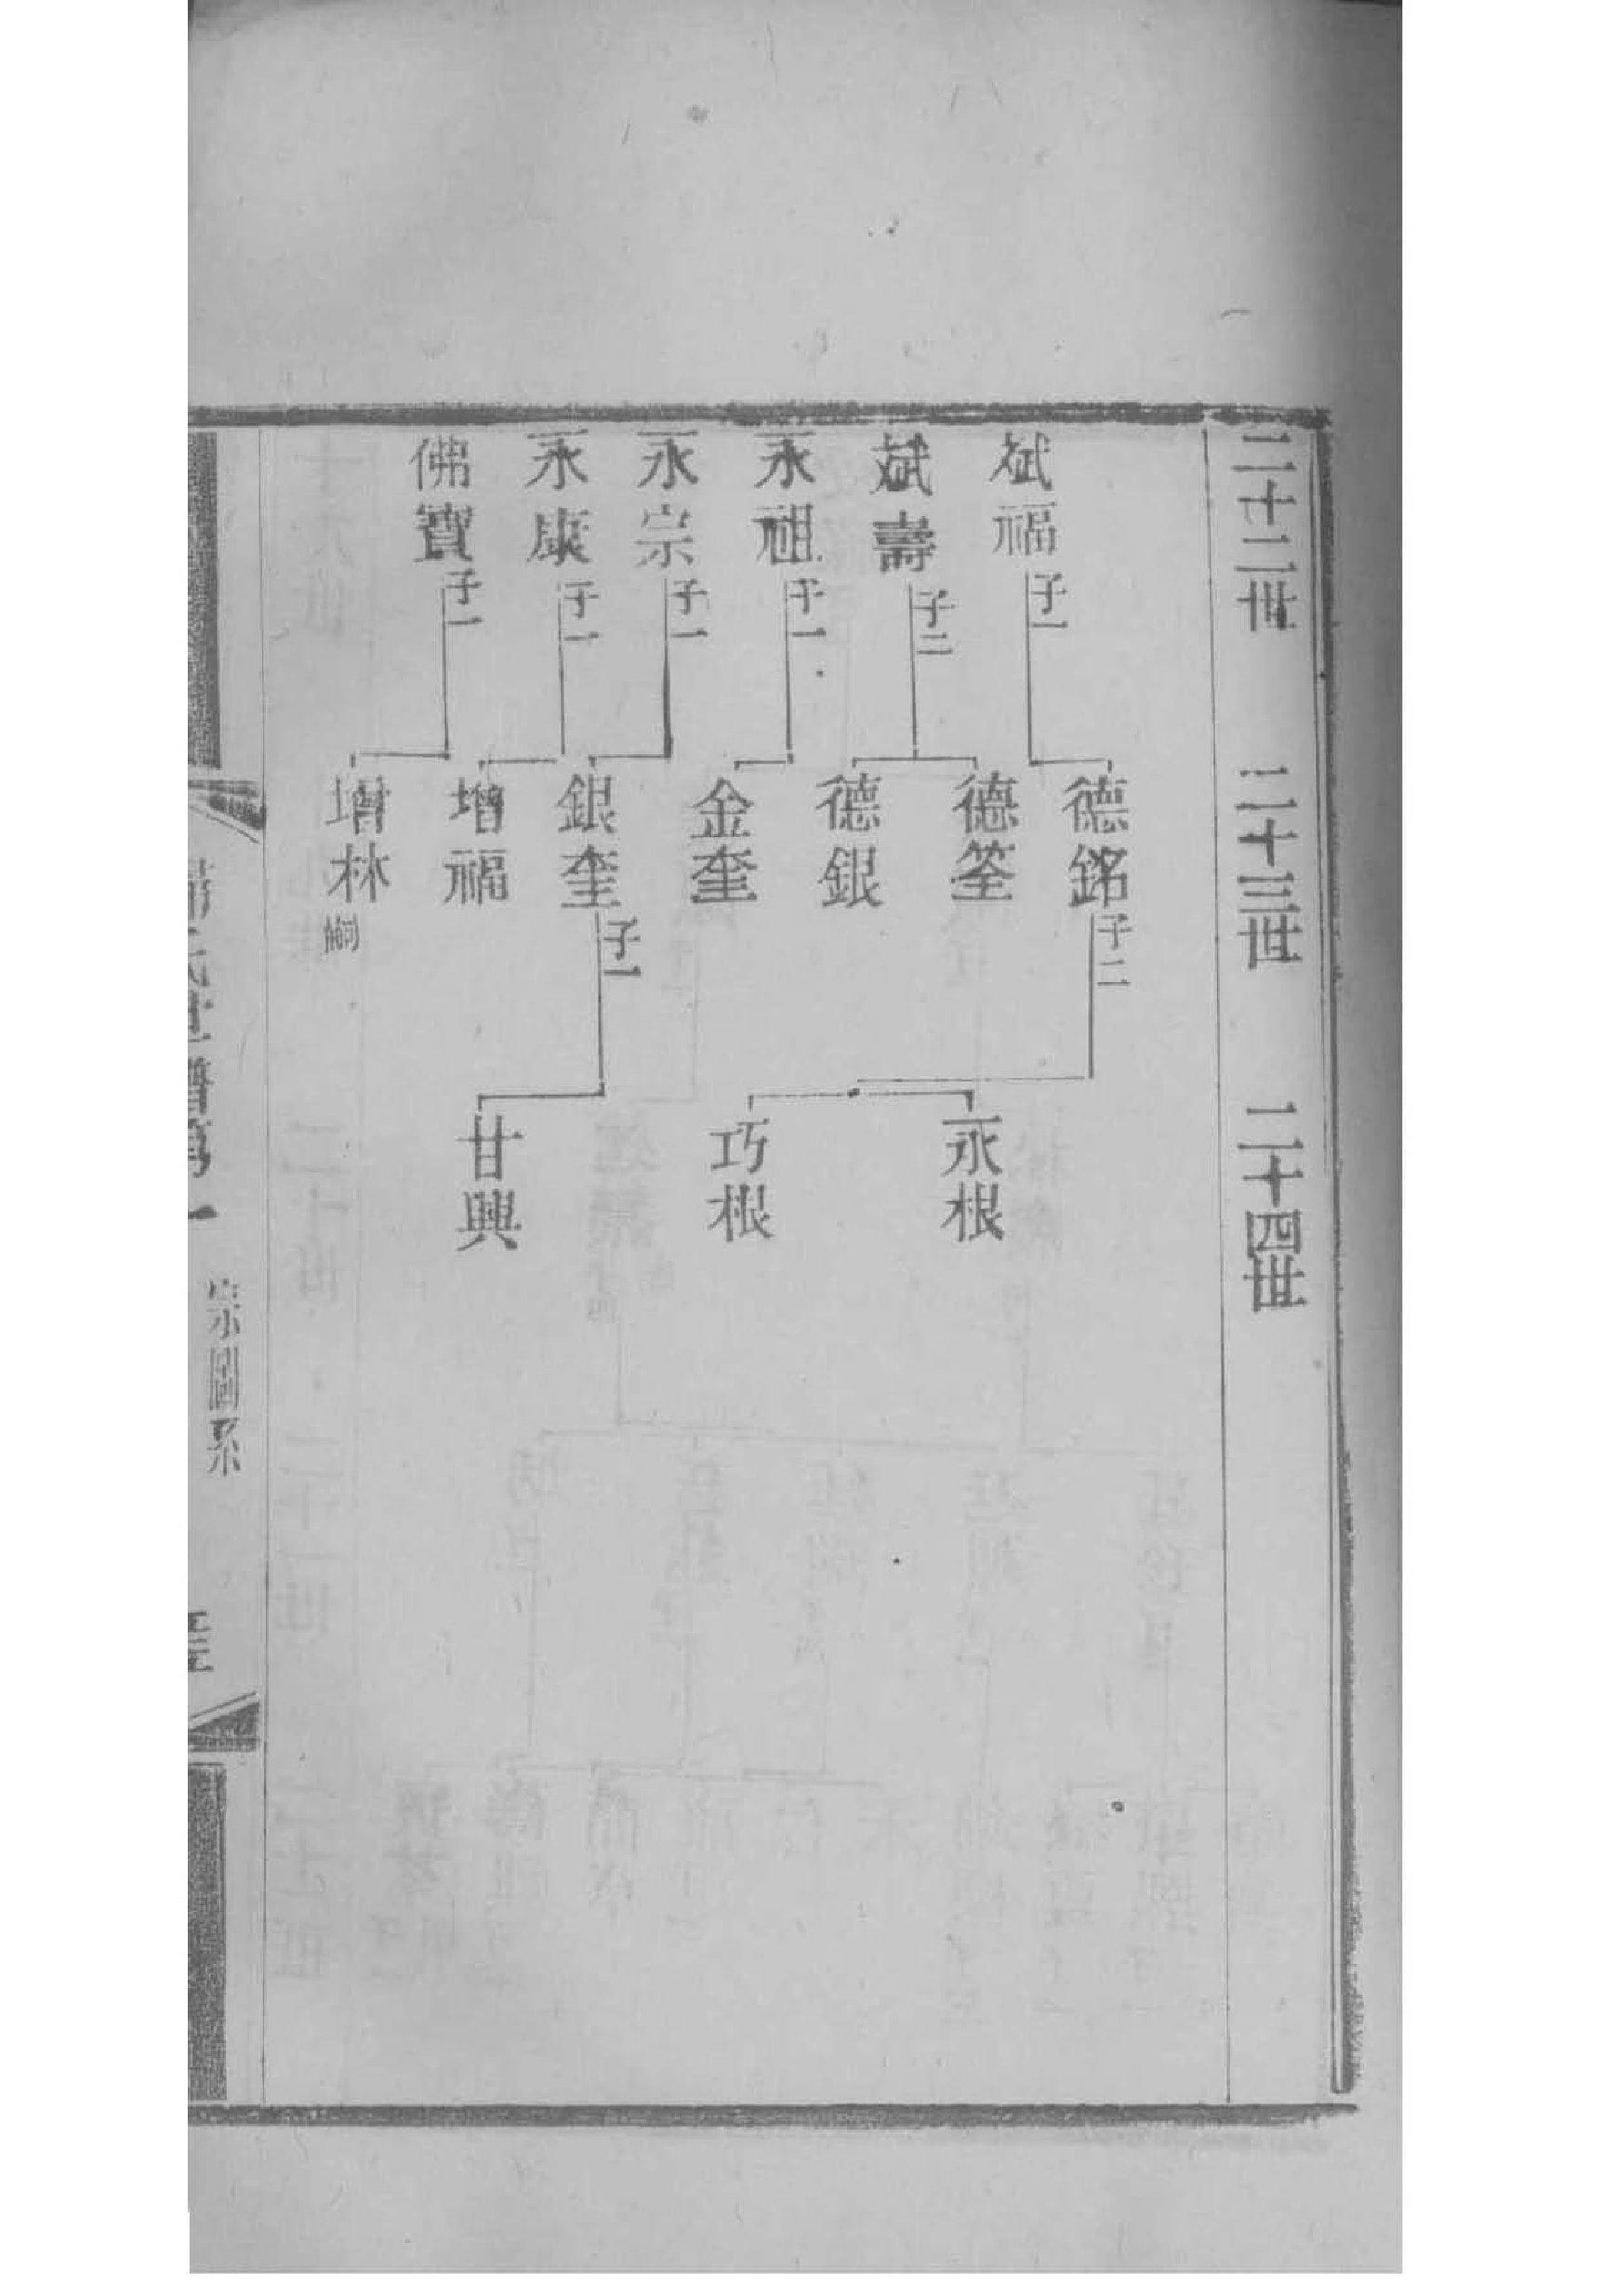 二十二世
二十三世
二十四世
斌福
子一
斌壽
子二
永祖
子一
永宗
子一
永康
子一
佛寶
子一
德銘
子二
德筌
德銀
金奎
銀奎
子一
增福
增林
嗣
永根
巧根
甘興
氏世譜第一
宗圖系